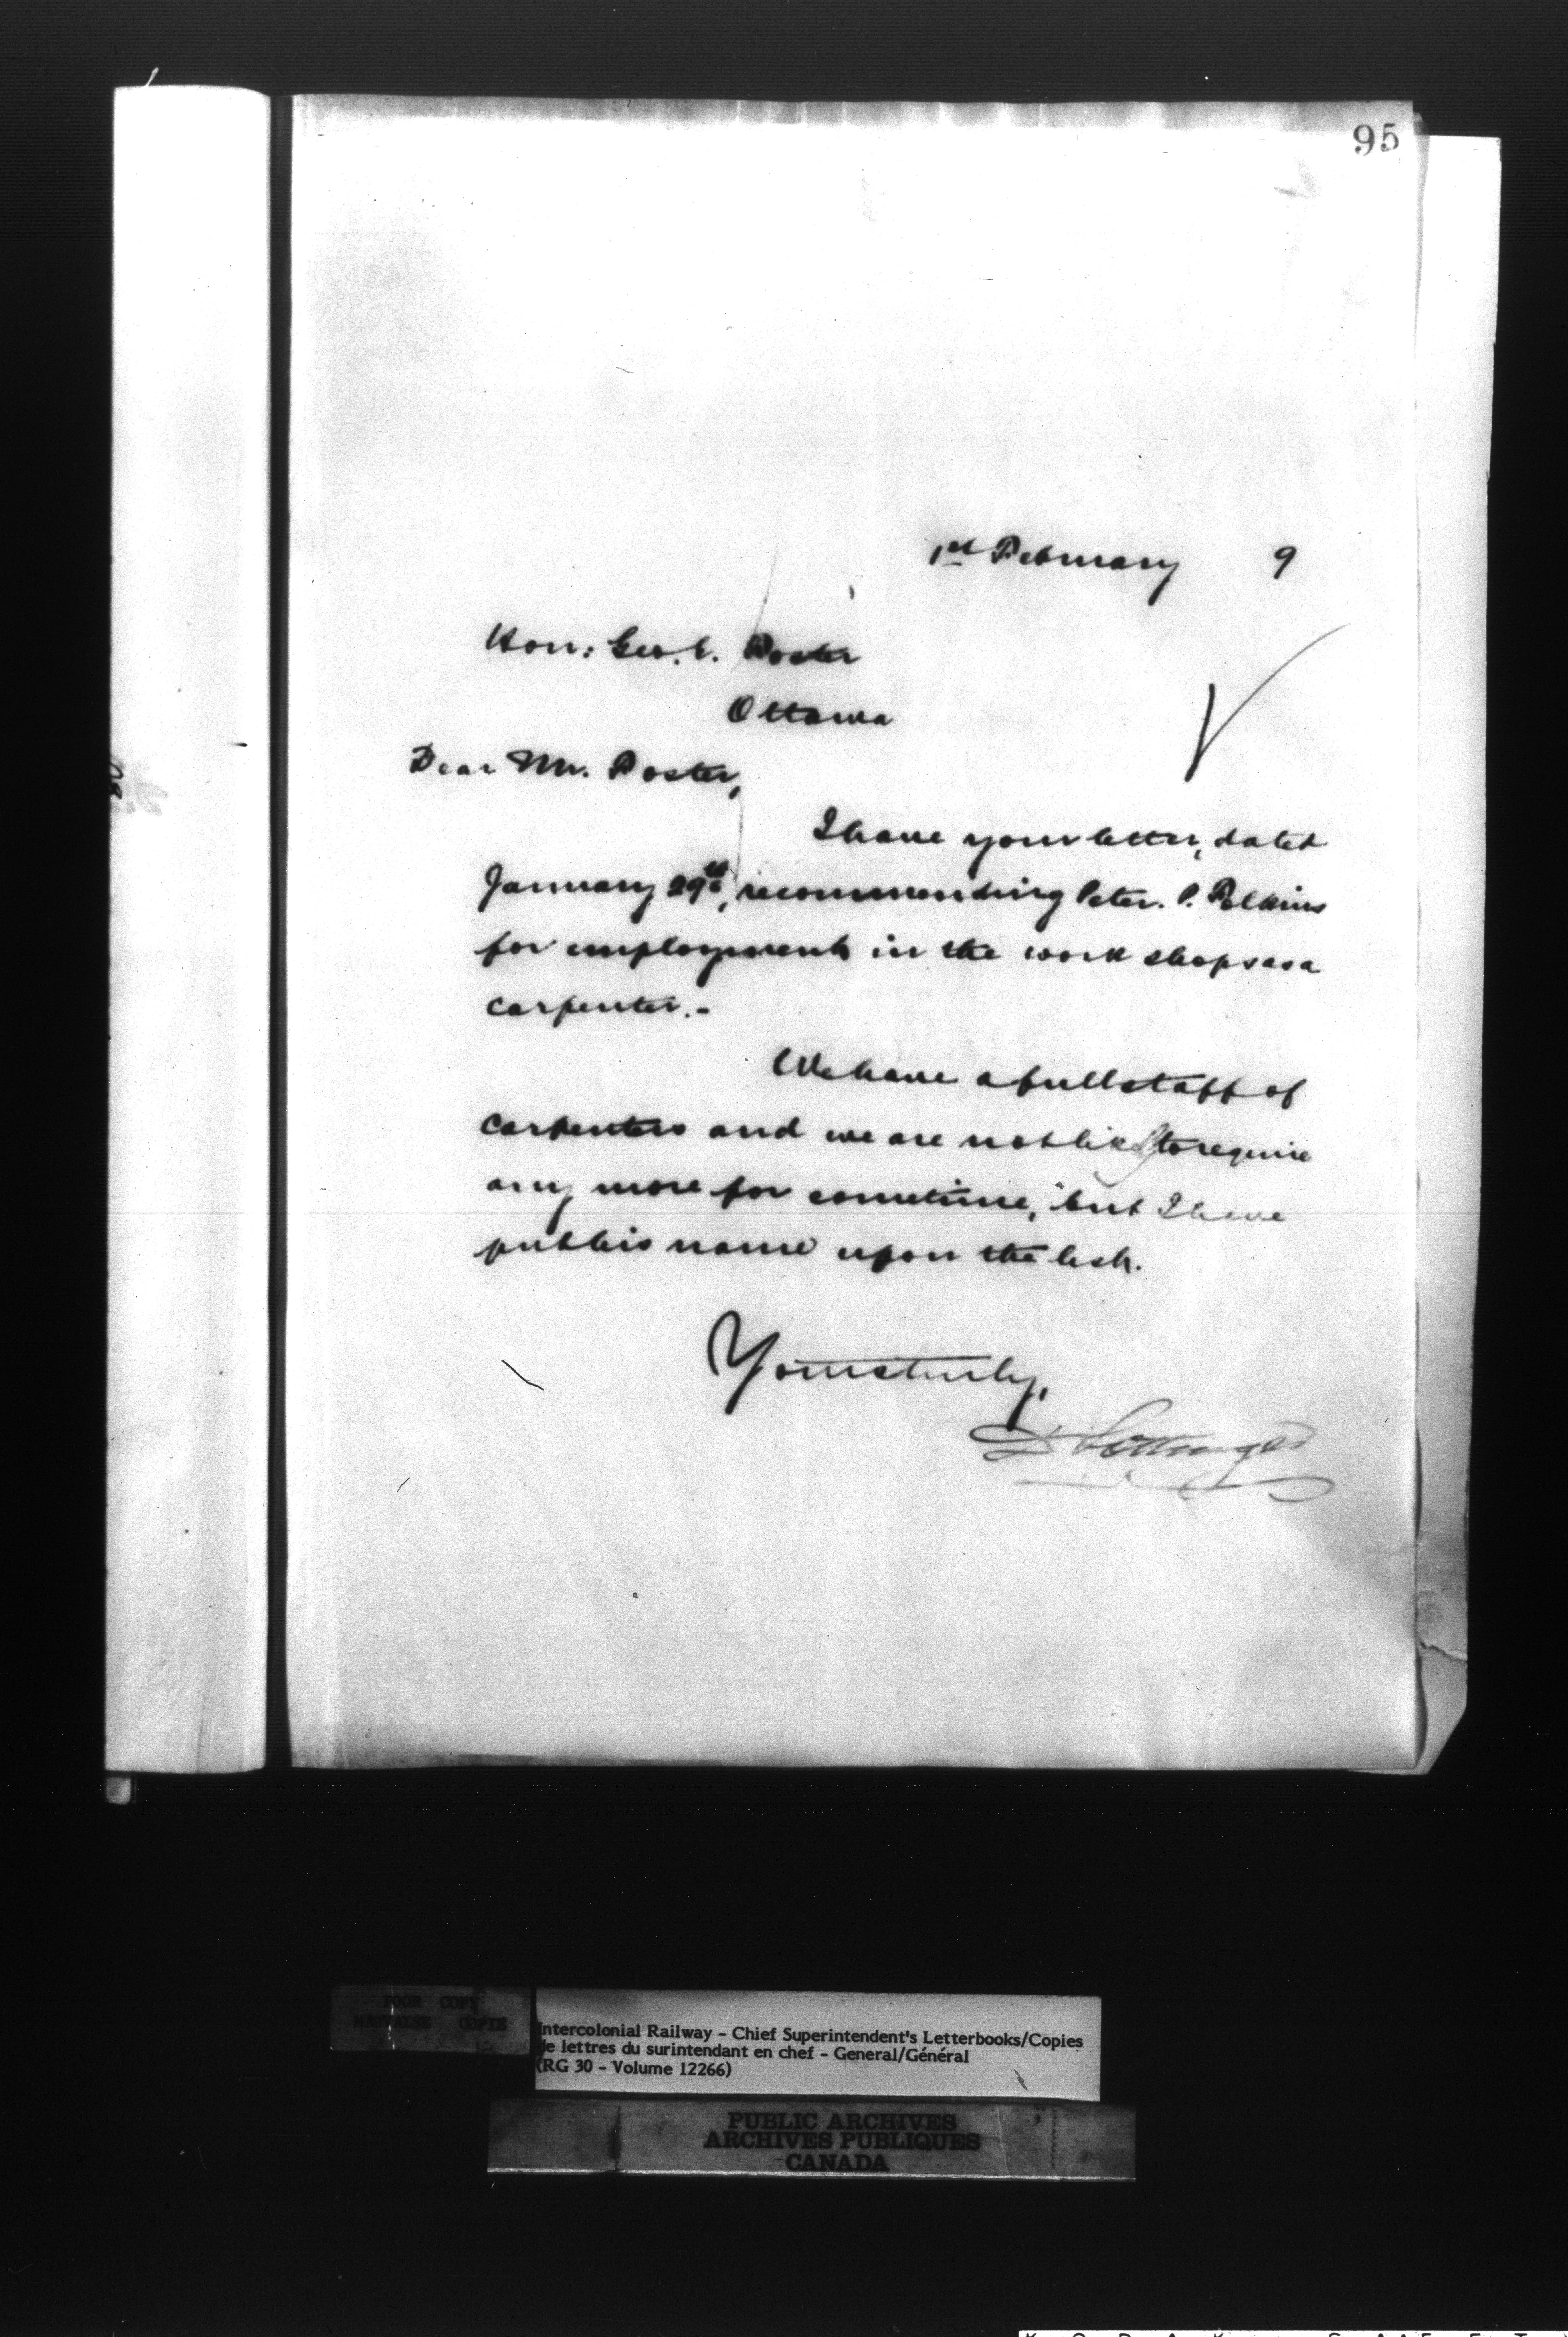 95
1st February 9
Hon: Geo. E. Foster
Ottawa
Dear Mr. Foster,
I have your letter, dated
January 29th, recommending Peter. P.
for employment in the work shops as a
carpenter.-
We have a full staff of
carpenters and we are not likely to require
any more for sometime, but I have
put his name upon the list.
Yours truly,
D Pottinger
POOR COPY
MAUVAISE COPIE
Intercolonial Railway - Chief Superintendent's Letterbooks/Copies
de lettres du surintendant en chef - General/Général
(RG 30 - Volume 12266)
PUBLIC ARCHIVES
ARCHIVES PUBLIQUES
CANADA